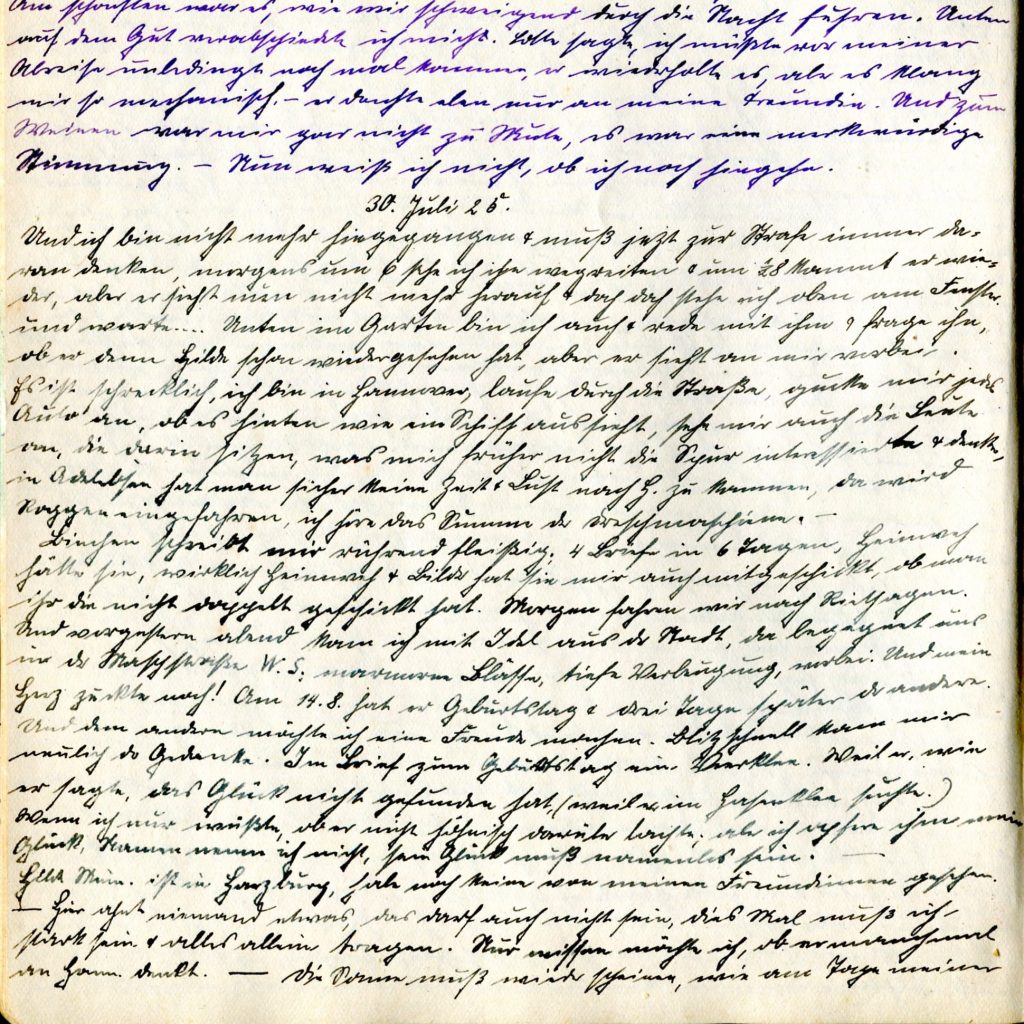 Am schönsten war es, wie wir schweigend durch die Nacht fuhren. Unten
auf dem Gut verabschiedete ich mich. Lotte sagte, ich müßte vor meiner
Abreise unbedingt noch mal kommen, er wiederholte es, aber es klang
mir so mechanisch, – er dachte eben nur an meine Freundin. Und zum
Weinen war mir gar nicht zu Mute, es war eine merkwürdige
Stimmung. – Nun weiß ich nicht, ob ich noch hingehe.
30. Juli 25.
Und ich bin nicht mehr hingegangen & muß jetzt zur Strafe immer da-
ran denken, morgens um 6 sehe ich ihn wegreiten & um ½8 kommt er wie-
der, aber er sieht nun nicht mehr herauf & doch stehe ich oben am Fenster
und warte.... Unten im Garten bin ich auch & rede mit ihm & frage ihn,
ob er denn Hilde schon wiedergesehen hat, aber er sieht an mir vorbei.
Es ist schrecklich, ich bin in Hannover, laufe durch die Straße, gucke mir jedes
Auto an, ob es hinten wie ein Schiff aussieht, sehe mir auch die Leute
an, die darin sitzen, was mich früher nicht die Spur interessierte & denke,
in Adelebsen hat man sicher keine Zeit & Lust nach H. zu kommen, da wird
Roggen eingefahren, ich höre das Summen der Dreschmaschiene. –
Binchen schreibt mir rührend fleißig, 4 Briefe in 6 Tagen, Heimweh
hätte sie, wirklich Heimweh & Bilder hat sie mir auch mitgeschickt, ob man
ihr die nicht doppelt geschickt hat. Morgen fahren wir nach Riethagen.
Und vorgestern abend kam ich mit Idel aus der Stadt, da begegnet uns
in der Maschstraße W. S.; marmorne Blässe, tiefe Verbeugung, vorbei. Und mein
Herz zuckte noch! Am 14.8. hat er Geburtstag & drei Tage später der andere.
Und dem andern möchte ich eine Freude machen. Blitzschnell kam mir
neulich der Gedanke. Im Brief zum Geburtstag ein Vierklee. Weil er, wie
er sagte, das Glück nicht gefunden hat, (weil er im Hasenklee suchte.)
Wenn ich nur wüßte, ob er nicht höhnisch darüber lachte; aber ich opfere ihm mein
Glück, Namen nenne ich nicht, sein Glück muß namenlos sein. —
Mün. ist in Harzburg, habe noch keine von meinen Freundinnen gesehen.
– Hier ahnt niemand etwas, das darf auch nicht sein, dies Mal muß ich
stark sein & alles allein tragen. Nur wissen möchte ich, ob er manchmal
an Hann. denkt. — Die Sonne muß wieder scheinen, wie am Tage meiner